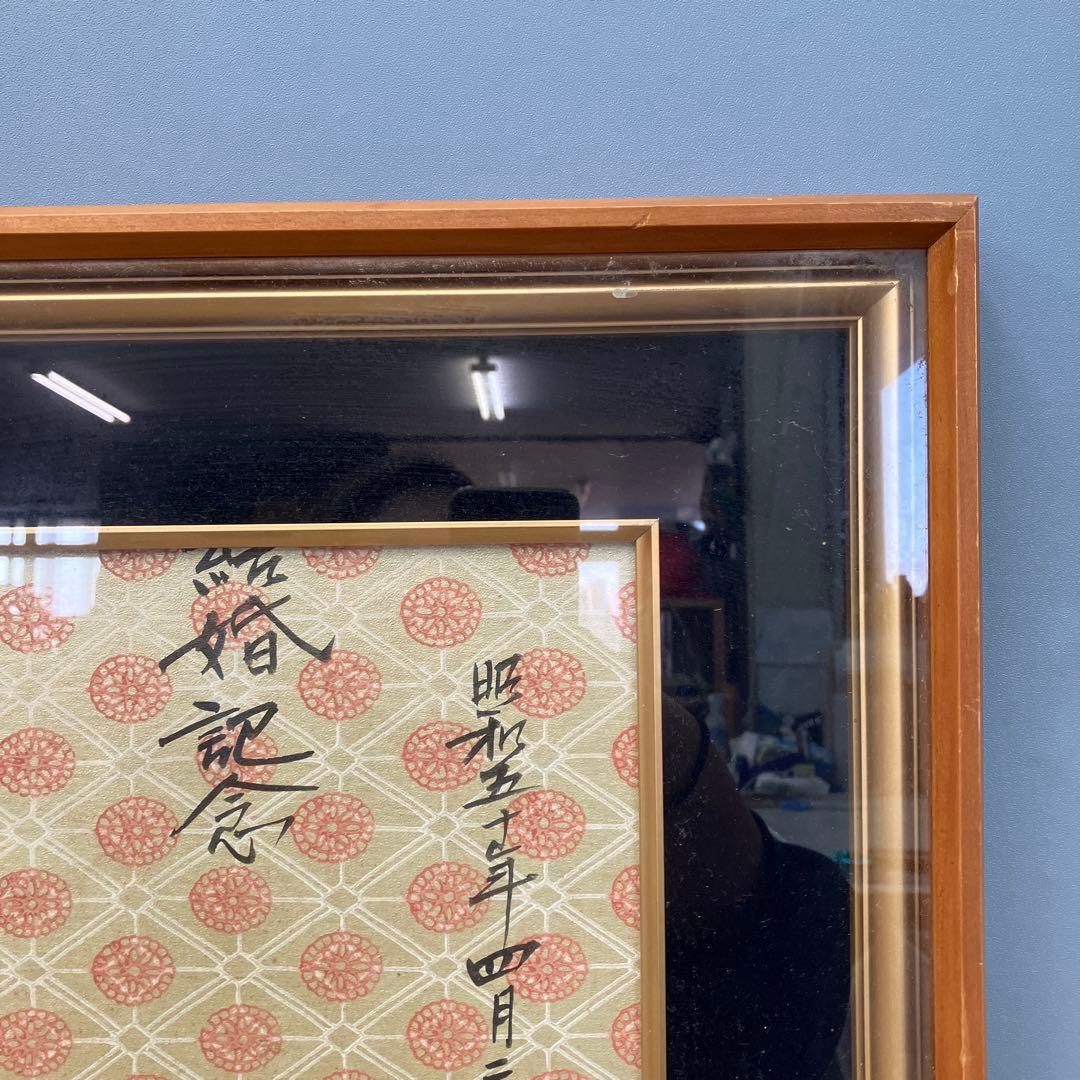 昭和五十年四月
結婚記念